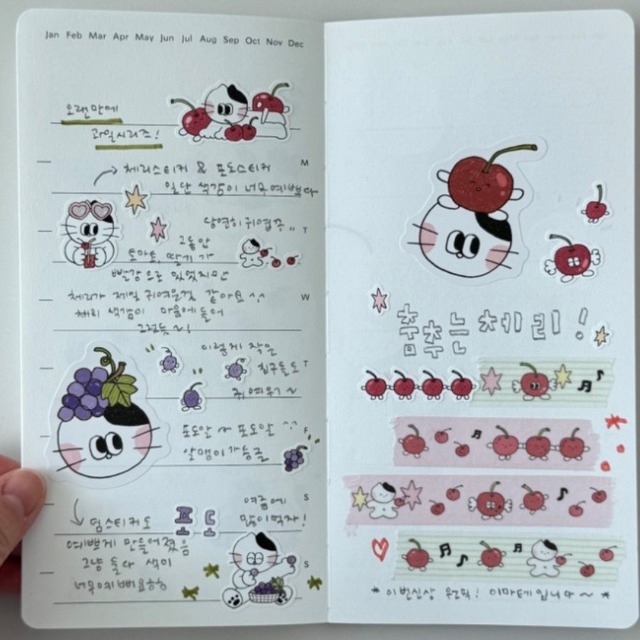 Jan Feb Mar Apr May Jun Jul Aug Sep Oct Nov Dec
오랜만에
과일시리즈!
체리스티커 & 포도스티커
M
일단 색감이 너무 예쁘다
당연히 귀엽쥬 ㅠ
T
그동안
토마토 딸기가
빨강으로 있었지만
W
체리가 제일 귀여운것 같아요 ^^
체리 색감이 마음에 들어
그런듯~!
이렇게 작은
T
친구들도
귀여워~
포도알~ 포도알 ^^
F
알맹이 가득글
S
여름에
많이먹자!
덤스티커도
포도
예쁘게 만들어졌음
S
그냥 둘다 색이
너무 예뻐요
춤추는 체리!
* 이번신상 원픽! 이마테입니다~ *